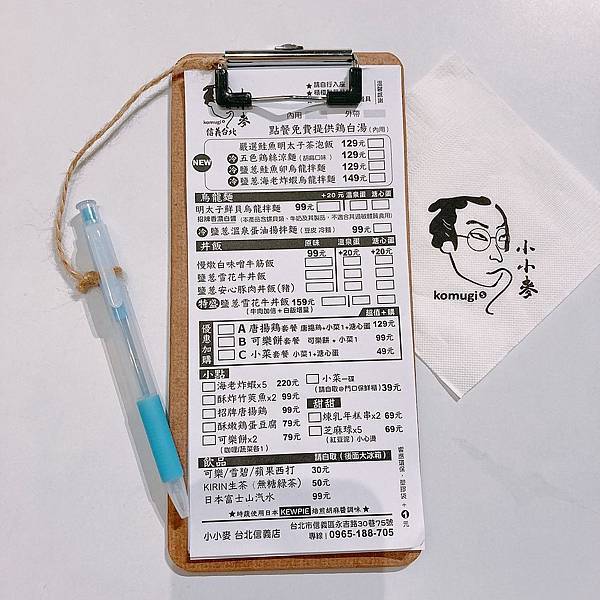 ★請自行入座
komugi 小小麥
信義台北
內用 外帶
點餐免費提供鶏白湯(內用)
嚴選鮭魚明太子茶泡飯 129元
NEW
冷 五色鶏絲涼麵(胡麻口味) 129元
冷 鹽蔥鮭魚卵烏龍拌麵 129元
冷 鹽蔥海老炸蝦烏龍拌麵 149元
烏龍麵 +20元 溫泉蛋 溏心蛋
明太子鮮貝烏龍拌麵 99元
冷 鹽蔥溫泉蛋油揚拌麵(豆皮 冷麵) 99元
丼飯 原味 溫泉蛋 溏心蛋
+20元 +20元
慢燉白味噌牛筋飯 99元
鹽蔥雪花牛丼飯 99元
鹽蔥安心豚肉丼飯(豬) 99元
特盛 鹽蔥雪花牛丼飯 159元
(牛肉加倍+白飯增量)
超值+購
優惠加購
A 唐揚鶏套餐 唐揚鶏+小菜1+溏心蛋 129元
B 可樂餅套餐 可樂餅+小菜1 99元
C 小菜套餐 小菜1+溏心蛋 49元
小點
海老炸蝦x5 220元
酥炸竹莢魚x2 99元
招牌唐揚鶏 99元
酥嫩鶏蛋豆腐 79元
可樂餅x2 79元
(咖哩/蔬菜各1)
小菜一碟
(請自取@門口保鮮櫃) 39元
甜甜
煉乳年糕串x2 69元
芝麻球x5 69元
(紅豆泥)小心燙
飲品 請自取(後面大冰箱)
可樂/雪碧/蘋果西打 30元
KIRIN生茶(無糖綠茶) 50元
日本富士山汽水 99元
★時蔬使用日本 KEWPIE 焙煎胡麻醬調味★
小小麥 台北信義店
台北市信義區永吉路30巷75號
專線:0965-188-705
小小麥
komugi